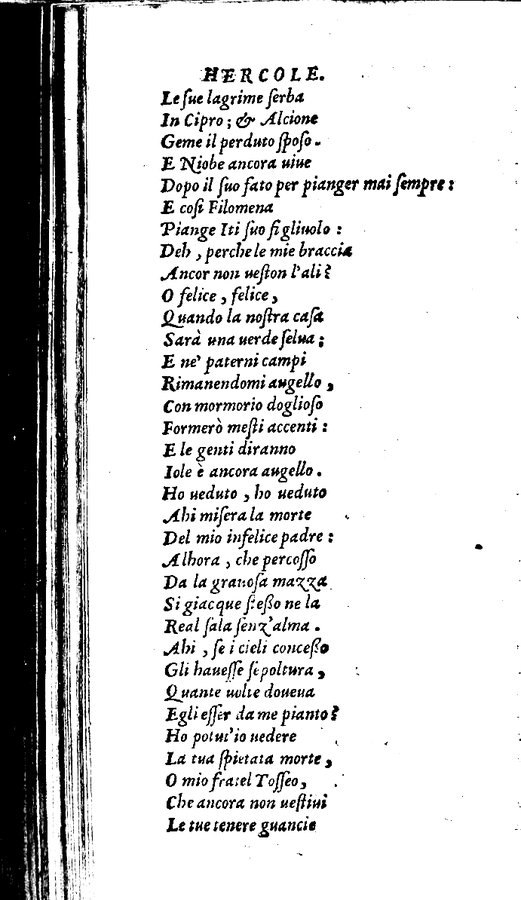 HERCOLE.
Le ſue lagrime ſerba
In Cipro; & Alcione
Geme il perduto ſpoſo.
E Niobe ancora uiue
Dopo il ſuo fato per pianger mai ſempre:
E coſi Filomena
Piange Iti ſuo figliuolo:
Deh, perche le mie braccia
Ancor non ueſton l'ali?
O felice, felice,
Quando la noſtra caſa
Sarà una uerde ſelua;
E ne' paterni campi
Rimanendomi augello,
Con mormorio doglioſo
Formerò meſti accenti:
E le genti diranno
Iole è ancora augello.
Ho ueduto, ho ueduto
Ahi miſera la morte
Del mio infelice padre:
Alhora, che percoſſo
Da la granoſa mazza
Si giacque ſteßo ne la
Real ſala ſenz'alma.
Ahi, ſe i cieli conceßo
Gli haueſſe ſepoltura,
Quante uolte doueua
Egli eſſer da me pianto?
Ho potut'io uedere
La tua ſpietata morte,
O mio fratel Toſſeo,
Che ancora non ueſtiui
Le tue tenere guancie